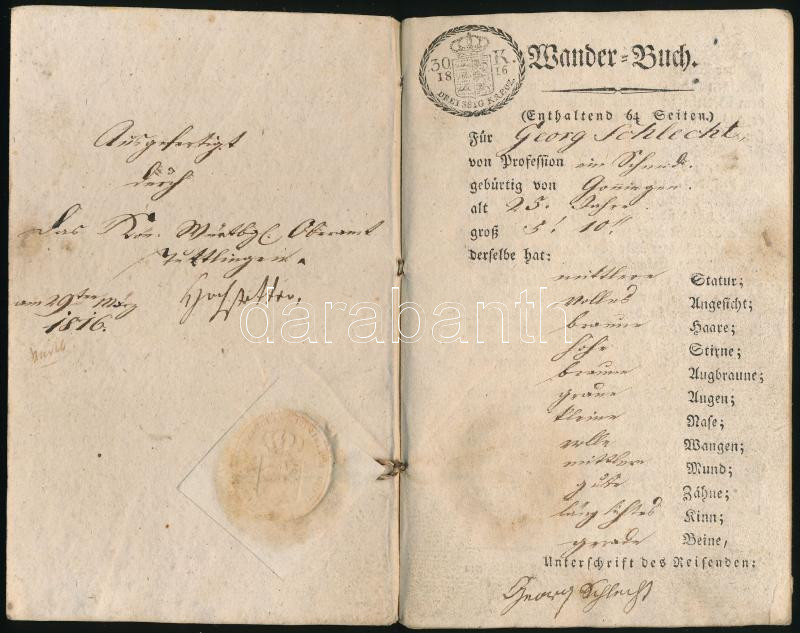 Ausgefertigt
durch
Das Kön. Würtbgl. Oberamt
Tuttlingen.
am 29ten März
1816.
30 K.
18 16
DREISSIG KREUZ.
Wander=Buch.
(Enthaltend 64 Seiten.)
Für Georg Schlecht
von Profession ein Schmid.
gebürtig von Gonningen.
alt 25. Jahre.
groß 5' 10''
derselbe hat:
mittlere Statur;
volles Angesicht;
braune Haare;
hohe Stirne;
braune Augbraune;
graue Augen;
kleine Nase;
volle Wangen;
mittlere Mund;
gute Zähne;
länglichtes Kinn;
gerade Beine,
Unterschrift des Reisenden:
Georg Schlecht
darabanth